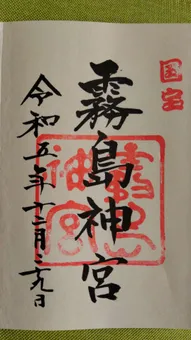 国宝
霧島神宮
霧島
神宮
令和五年十二月二十九日